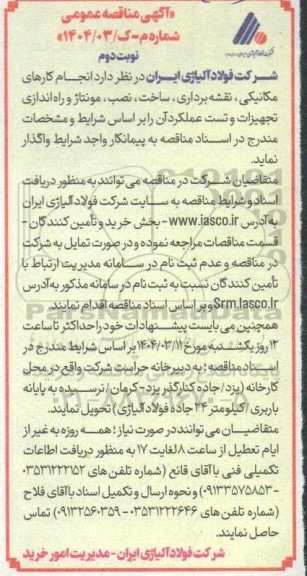 شرکت فولاد آلیاژی ایران
«آگهی مناقصه عمومی
شماره م-ک/۱۴۰۴/۰۳»
نوبت دوم
شرکت فولاد آلیاژی ایران در نظر دارد انجام کارهای
مکانیکی، نقشه برداری، ساخت، نصب، مونتاژ و راه‌اندازی
تجهیزات و تست عملکرد آن را بر اساس شرایط و مشخصات
مندرج در اسناد مناقصه به پیمانکار واجد شرایط واگذار
نماید.
متقاضیان شرکت در مناقصه می توانند به منظور دریافت
اسناد و شرایط مناقصه به سایت شرکت فولاد آلیاژی ایران
به آدرس www.iasco.ir - بخش خرید و تأمین کنندگان -
قسمت مناقصات مراجعه نموده و در صورت تمایل به شرکت
در مناقصه و عدم ثبت نام در سامانه مدیریت ارتباط با
تأمین کنندگان نسبت به ثبت نام در سامانه مذکور به آدرس
Srm.Iasco.Ir و بر اساس اسناد مناقصه اقدام نمایند.
همچنین می بایست پیشنهادات خود را حداکثر تا ساعت
۱۲ روز یکشنبه مورخ ۱۴۰۴/۰۳/۱۲ بر اساس شرایط مندرج در
اسناد مناقصه؛ به دبیرخانه حراست شرکت واقع در محل
کارخانه (یزد/جاده کنارگذر یزد- کرمان/نرسیده به پایانه
باربری/کیلومتر ۲۴ جاده فولاد آلیاژی) تحویل نمایند.
متقاضیان می توانند در صورت نیاز؛ همه روزه به غیر از
ایام تعطیل از ساعت ۸ لغایت ۱۷ به منظور دریافت اطلاعات
تکمیلی فنی با آقای قانع (شماره تلفن های ۰۳۵۳۱۲۲۲۱۵۲
-۰۹۱۳۳۵۷۵۸۵۳) و نحوه ارسال و تکمیل اسناد با آقای فلاح
(شماره تلفن های ۰۳۵۳۱۲۲۲۶۴۶ - ۰۹۱۳۲۵۶۰۳۵۹) تماس
حاصل نمایند.
شرکت فولاد آلیاژی ایران - مدیریت امور خرید